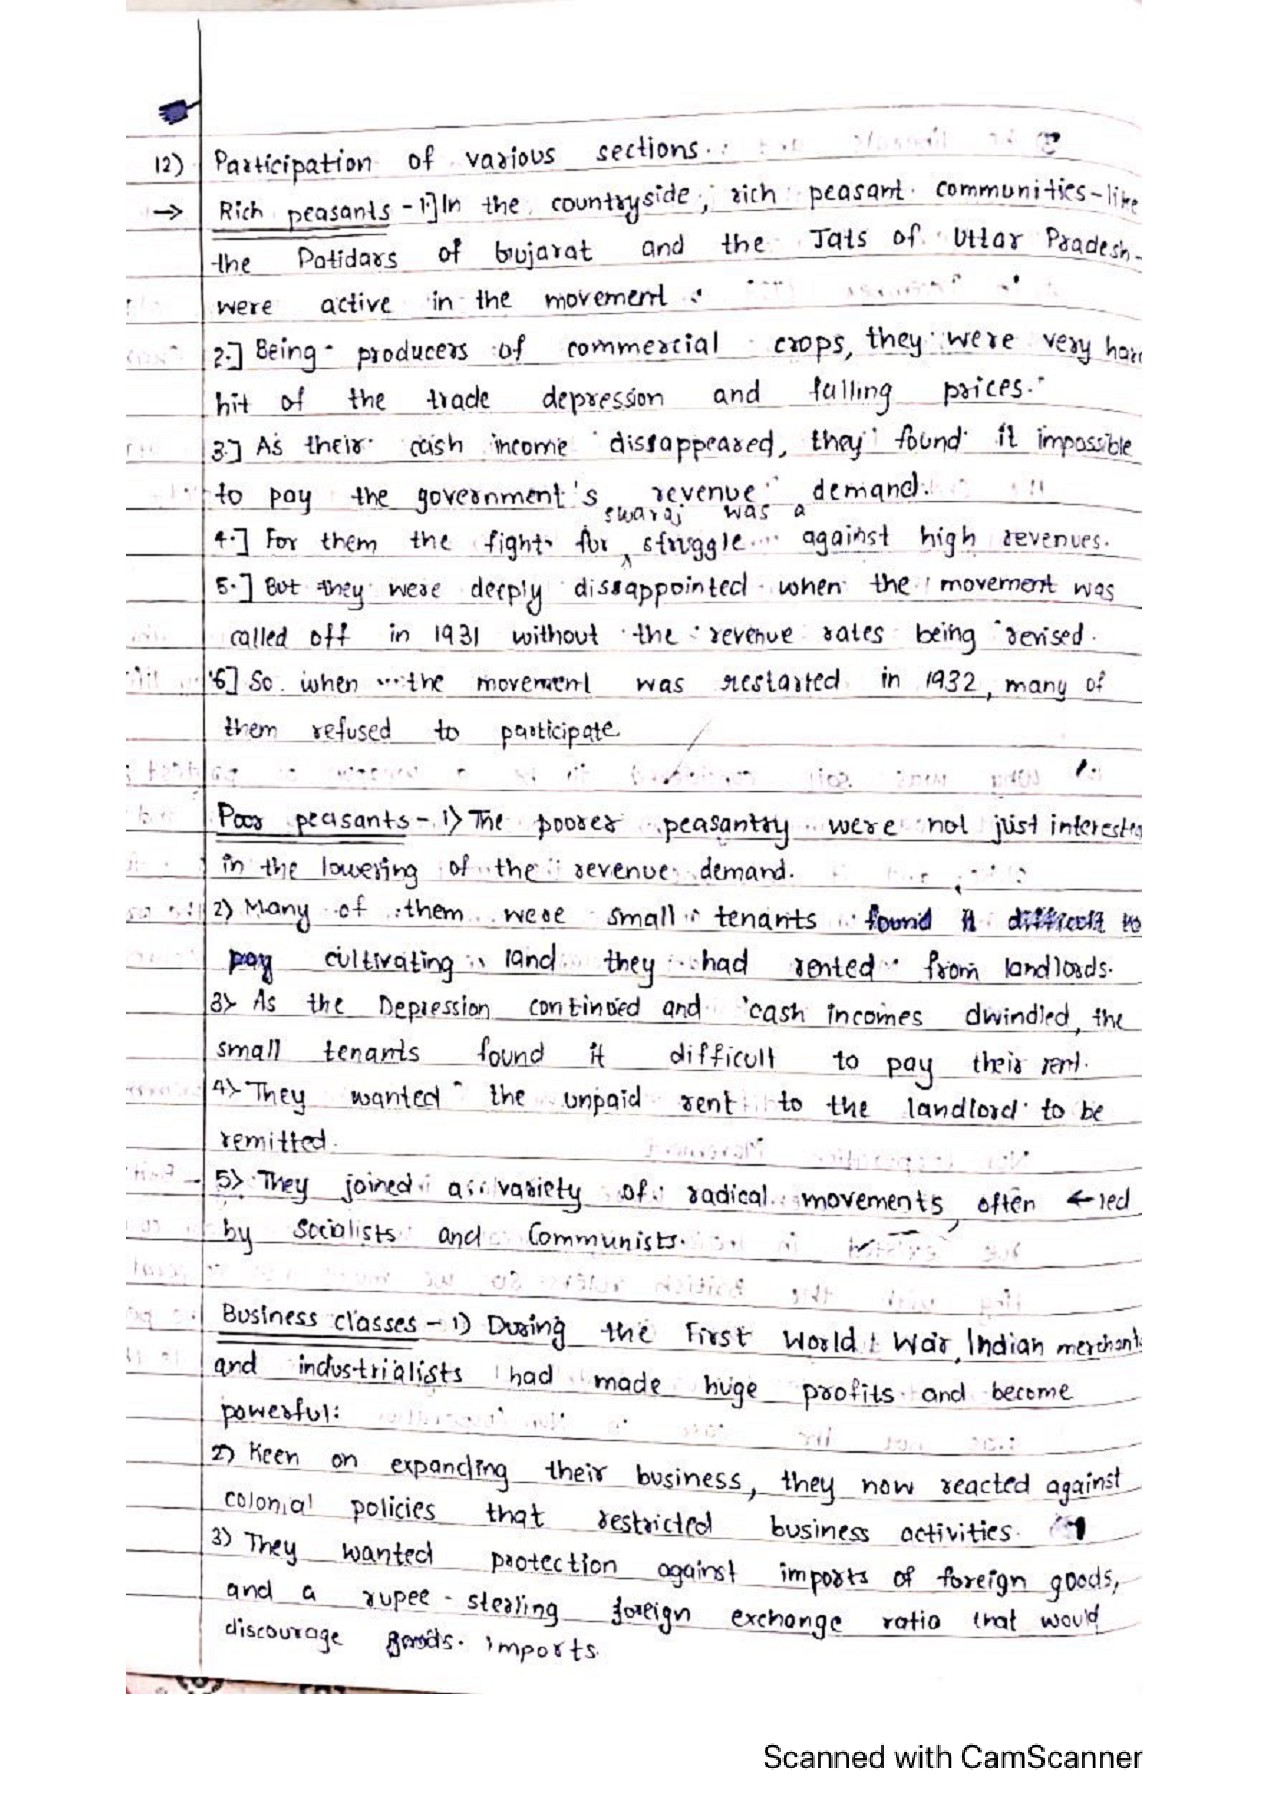 12) Participation of various sections.
→ Rich peasants - 1.] In the countryside, rich peasant communities - like
the Patidars of Gujarat and the Jats of Uttar Pradesh -
were active in the movement.
2.] Being producers of commercial crops, they were very hard
hit of the trade depression and falling prices.
3.] As their cash income dissappeared, they found it impossible
to pay the government's revenue demand.
swaraj was a
4.] For them the fight for ^ struggle against high revenues.
5.] But they were deeply dissappointed when the movement was
called off in 1931 without the revenue rates being revised.
6] So when the movement was restarted in 1932, many of
them refused to participate
Poor peasants - 1) The poorer peasantry were not just interested
in the lowering of the revenue demand.
2) Many of them were small tenants found it difficult to
pay cultivating land they had rented from landlords.
3) As the Depression continued and cash incomes dwindled, the
small tenants found it difficult to pay their rent.
4) They wanted the unpaid rent to the landlord to be
remitted.
5) They joined a variety of radical movements, often led
by Socialists and Communists.
Business classes - 1) During the First World War, Indian merchants
and industrialists had made huge profits and become
powerful:
2) Keen on expanding their business, they now reacted against
colonial policies that restricted business activities.
3) They wanted protection against imports of foreign goods,
and a rupee - sterling foreign exchange ratio that would
discourage goods. imports.
Scanned with CamScanner